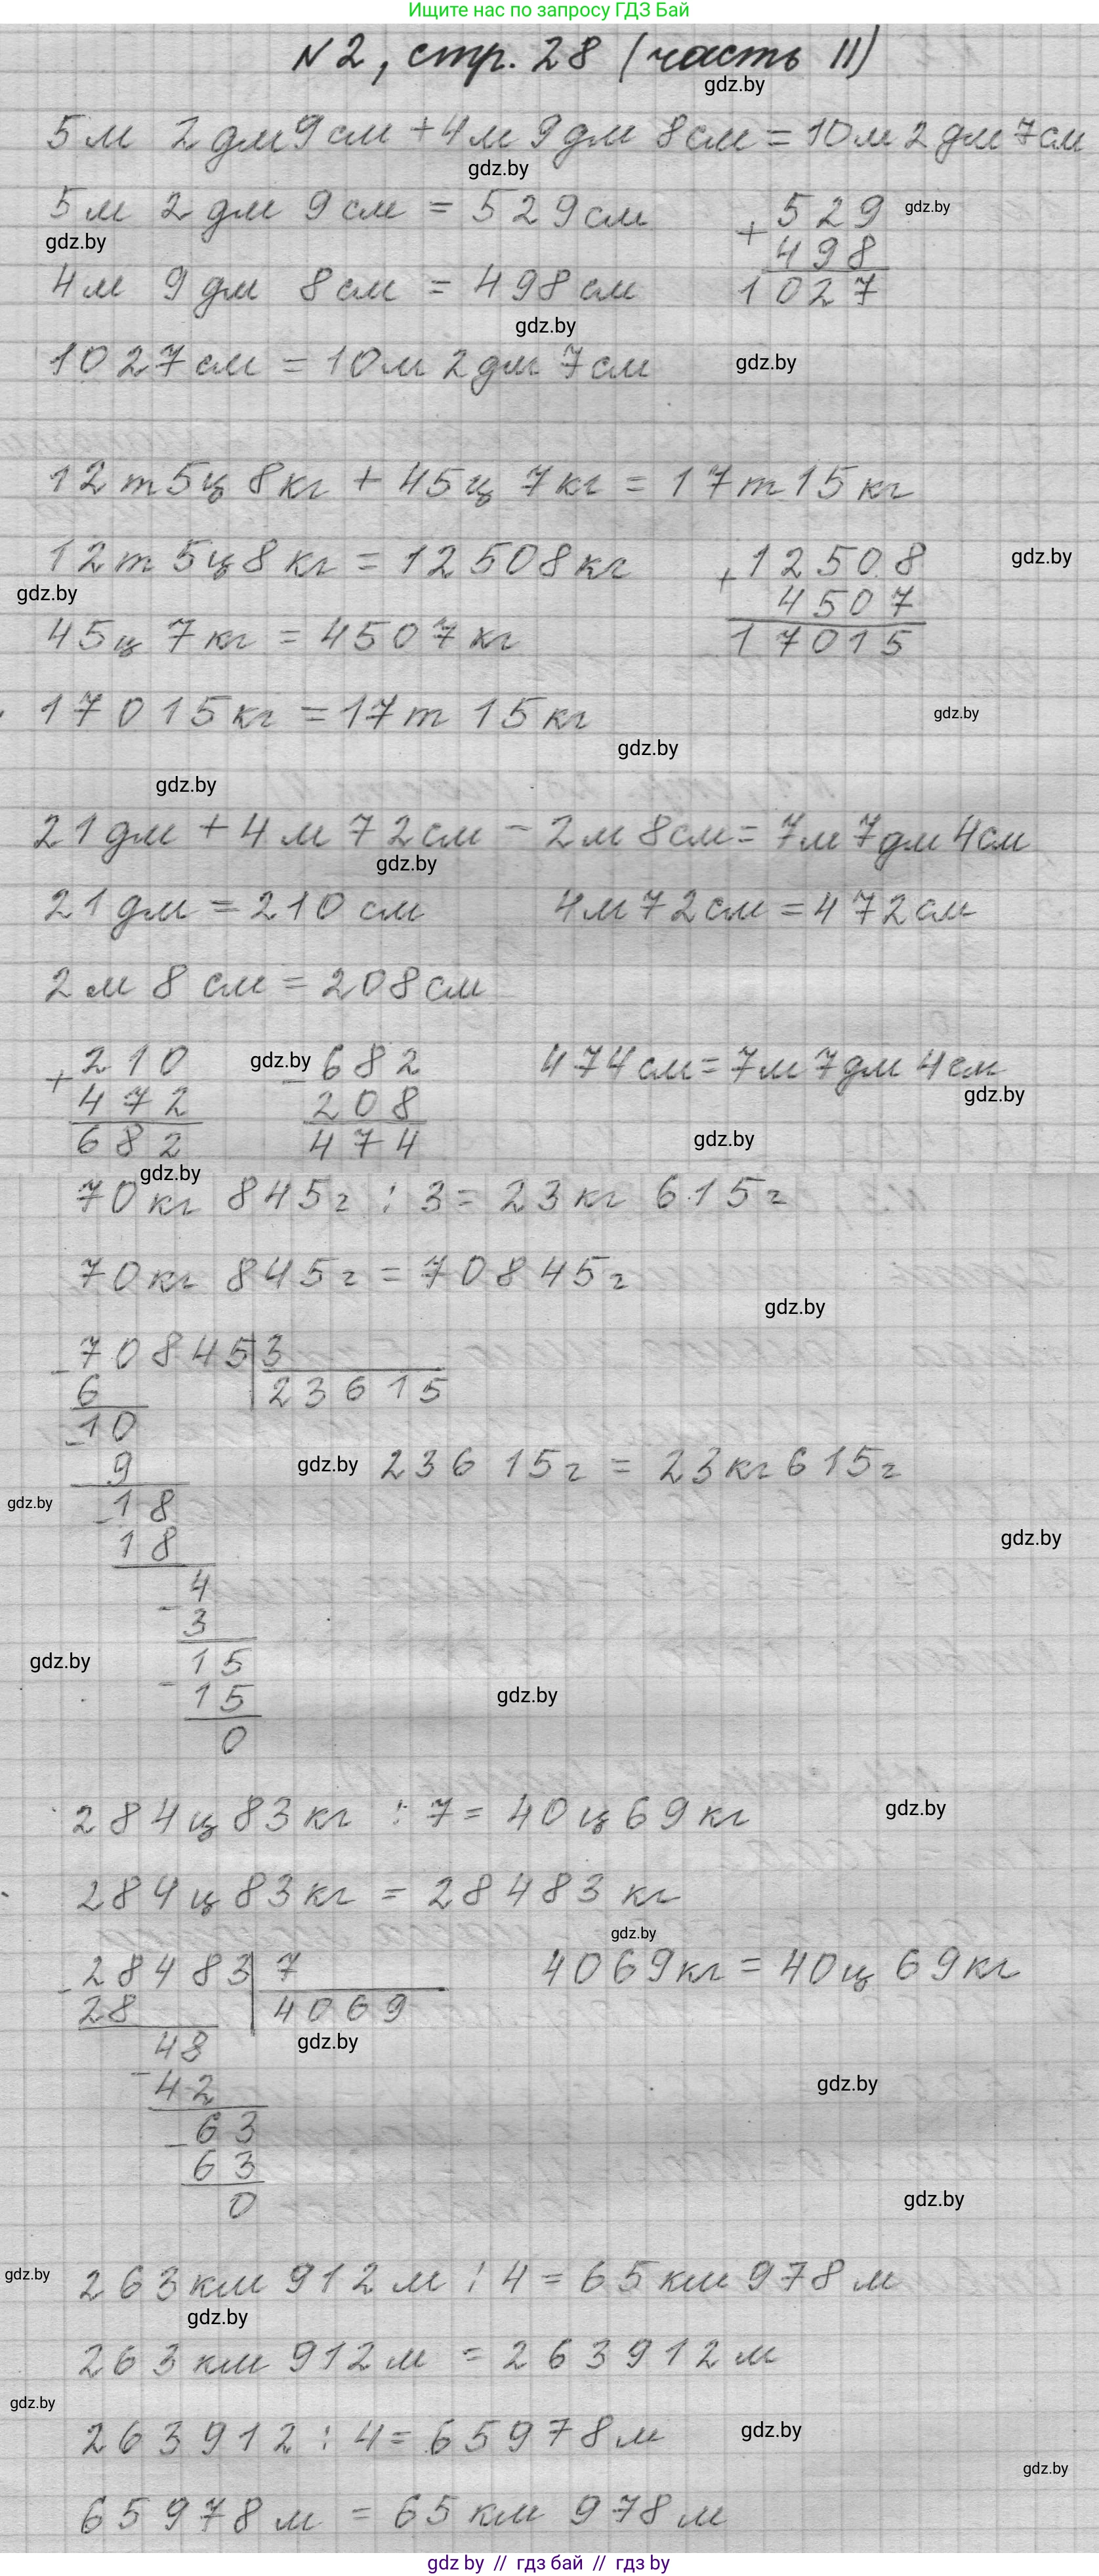 Ищите нас по запросу ГДЗ Бай
№2, стр. 28 (часть II)
gdz.by
5м 2дм 9см + 4м 9дм 8см = 10м 2дм 7см
gdz.by
5м 2дм 9см = 529см
+ 529
gdz.by
gdz.by
498
4м 9дм 8см = 498см
1027
gdz.by
1027см = 10м 2дм 7см
gdz.by
12т 5ц 8кг + 45ц 7кг = 17т 15кг
12т 5ц 8кг = 12508кг
+ 12508
gdz.by
gdz.by
4507
45ц 7кг = 4507кг
17015
17015кг = 17т 15кг
gdz.by
gdz.by
gdz.by
21дм + 4м 72см - 2м 8см = 7м 7дм 4см
gdz.by
21дм = 210см 4м 72см = 472см
2м 8см = 208см
+ 210 gdz.by - 682 474см = 7м 7дм 4см
gdz.by
472 208
682 474
gdz.by
gdz.by
70кг 845г : 3 = 23кг 615г
70кг 845г = 70845г
gdz.by
- 70845 3
6 23615
- 10
9
gdz.by 23615г = 23кг 615г
gdz.by
- 18
gdz.by
18
- 4
3
gdz.by
- 15
15
gdz.by
0
284ц 83кг : 7 = 40ц 69кг
gdz.by
284ц 83кг = 28483кг
gdz.by
- 28483 7 4069кг = 40ц 69кг
28 4069
gdz.by
- 48
42
gdz.by
- 63
63
gdz.by
0
gdz.by
263км 912м : 4 = 65км 978м
gdz.by
263км 912м = 263912м
gdz.by
263912 : 4 = 65978м
gdz.by
gdz.by
65978м = 65км 978м
gdz by // гдз бай // гдз by